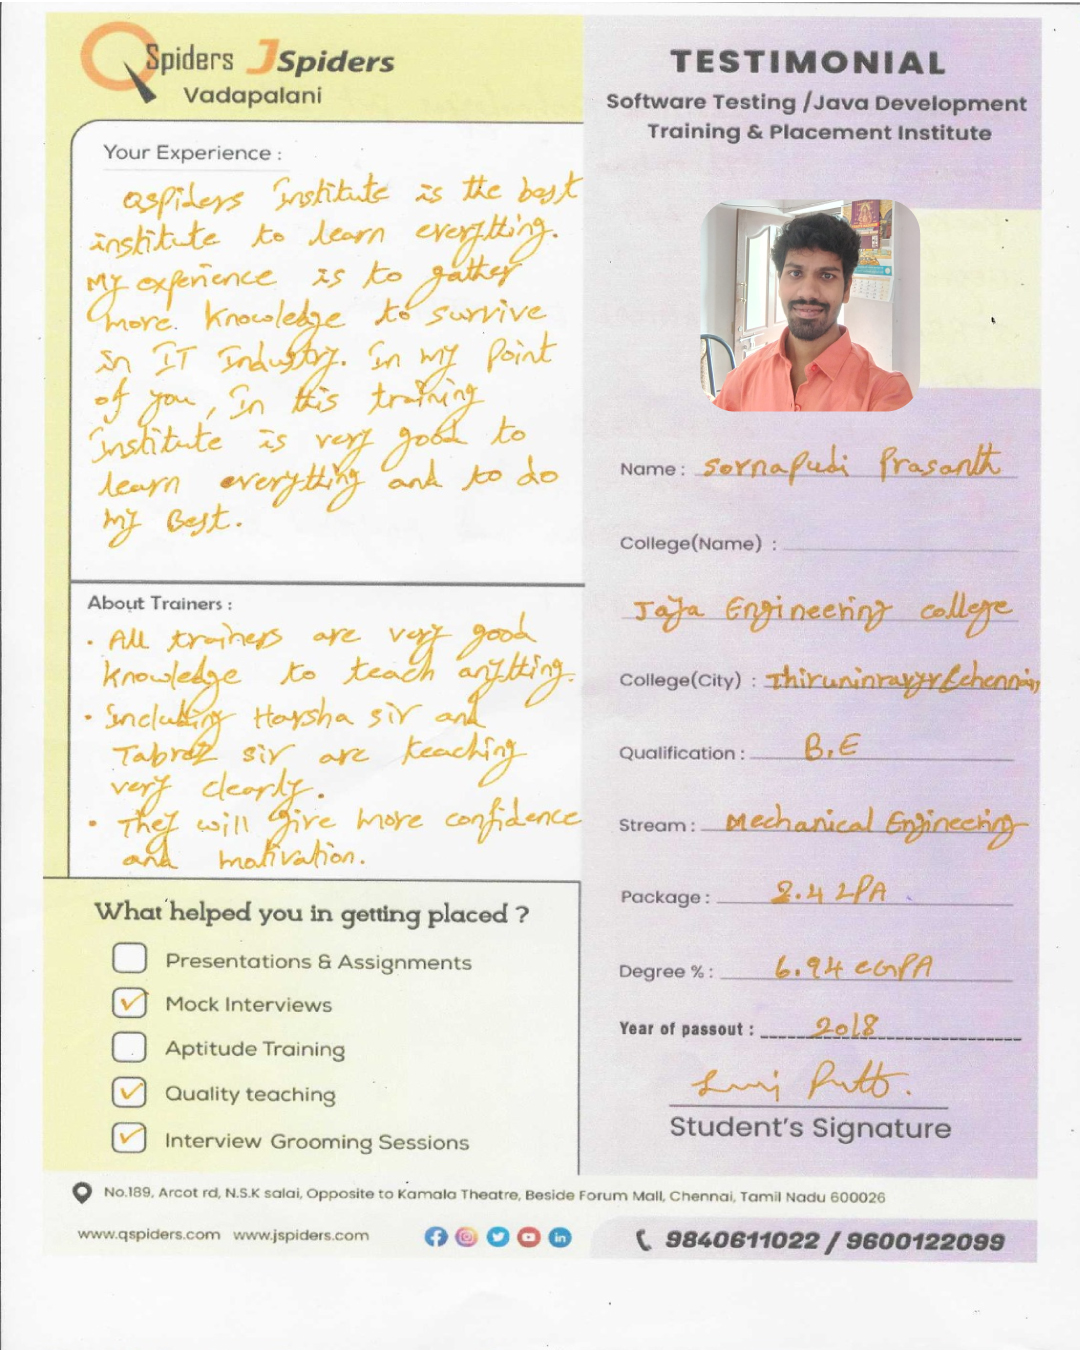 QSpiders JSpiders
Vadapalani
TESTIMONIAL
Software Testing /Java Development
Training & Placement Institute
Your Experience :
QSpiders Institute is the best
institute to learn everything.
My experience is to gather
more. Knowledge to survive
in IT Industry. In my Point
of you, In this training
Institute is very good to
learn everything and to do
my Best.
About Trainers :
• All trainers are very good
knowledge to teach anything.
• Including Harsha sir and
Tabrez sir are teaching
very clearly.
• They will give more confidence
and motivation.
What helped you in getting placed ?
Presentations & Assignments
Mock Interviews
Aptitude Training
Quality teaching
Interview Grooming Sessions
Name : Sornapudi Prasanth
College(Name) :
Jaya Engineering college
College(City) : Thiruninravur, chennai,
Qualification : B.E
Stream : Mechanical Engineering
Package : 2.4 LPA
Degree % : 6.94 CGPA
Year of passout : 2018
Student's Signature
No.189, Arcot rd, N.S.K salai, Opposite to Kamala Theatre, Beside Forum Mall, Chennai, Tamil Nadu 600026
www.qspiders.com www.jspiders.com
9840611022 / 9600122099